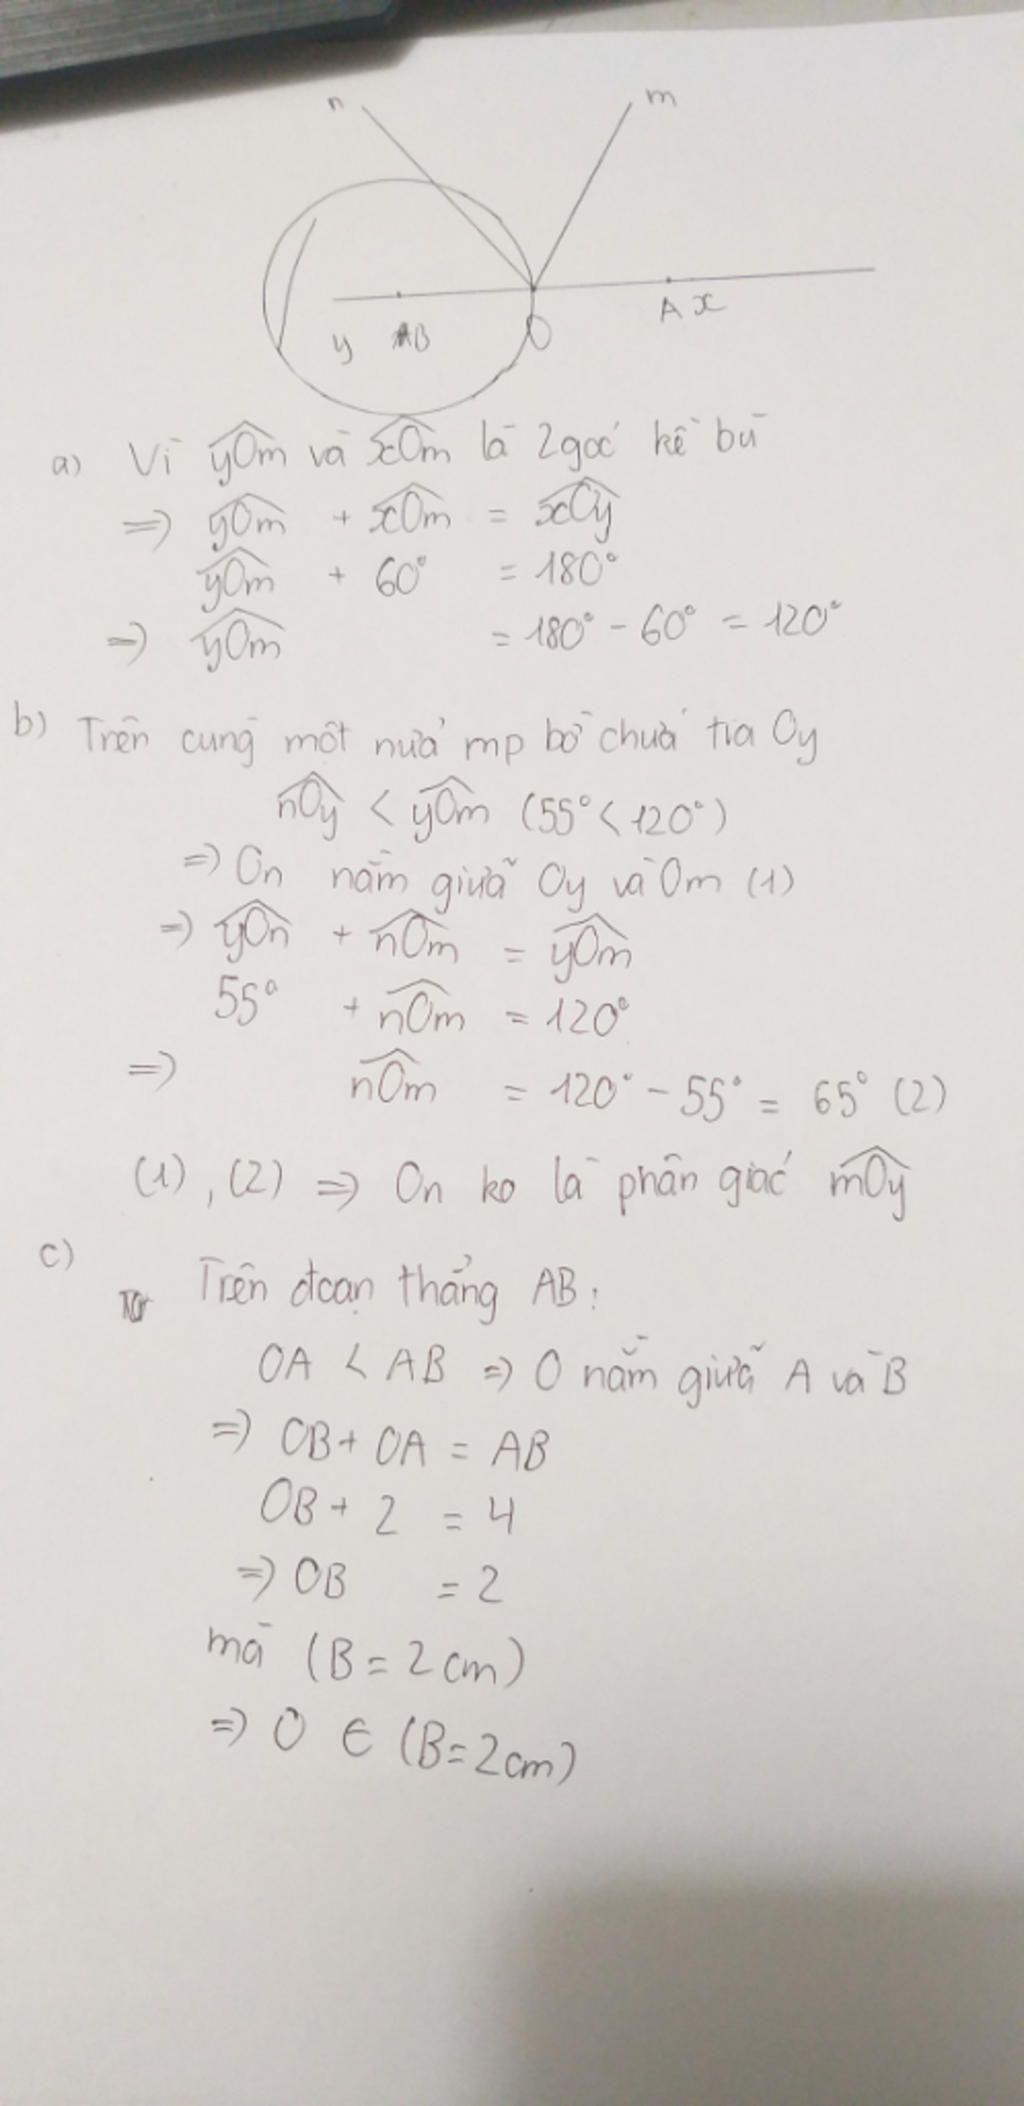 n m
y B O A x
a) Vì yOm và xOm là 2 góc kề bù
=> yOm + xOm = xOy
yOm + 60° = 180°
=> yOm = 180° - 60° = 120°
b) Trên cùng một nửa mp bờ chứa tia Oy
nOy < yOm (55° < 120°)
=> On nằm giữa Oy và Om (1)
=> yOn + nOm = yOm
55° + nOm = 120°
=> nOm = 120° - 55° = 65° (2)
(1), (2) => On ko là phân giác mOy
c)
Trên đoạn thẳng AB:
OA < AB => O nằm giữa A và B
=> OB + OA = AB
OB + 2 = 4
=> OB = 2
mà (B = 2cm)
=> O ∈ (B = 2cm)